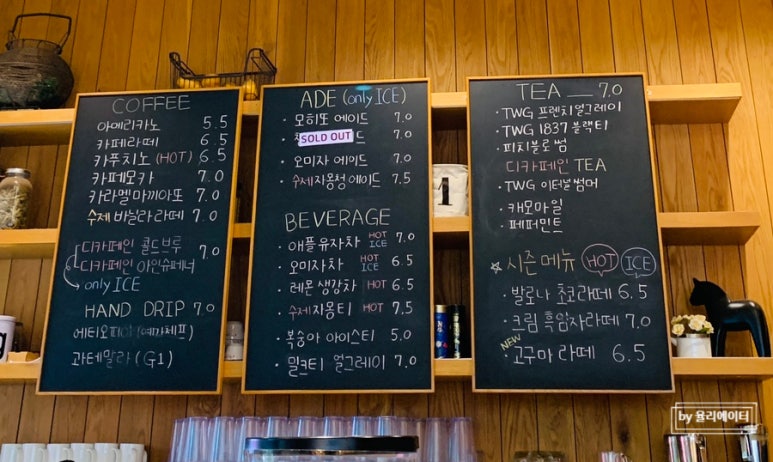 COFFEE
아메리카노 5.5
카페라떼 6.5
카푸치노 (HOT) 6.5
카페모카 7.0
카라멜마끼아또 7.0
수제 바닐라라떼 7.0
디카페인 콜드브루 7.0
디카페인 아인슈페너
only ICE
HAND DRIP 7.0
에티오피아 (예가체프)
과테말라 (G1)
ADE (only ICE)
모히또 에이드 7.0
SOLD OUT 드 7.0
오미자 에이드 7.0
수제자몽청 에이드 7.5
BEVERAGE
애플유자차 HOT ICE 7.0
오미자차 HOT ICE 6.5
레몬 생강차 HOT 6.5
수제자몽티 HOT 7.5
복숭아 아이스티 5.0
밀크티 얼그레이 7.0
TEA 7.0
TWG 프렌치얼그레이
TWG 1837 블랙티
피치블로썸
디카페인 TEA
TWG 이터널썸머
캐모마일
페퍼민트
☆시즌메뉴 HOT ICE
발로나 초코라떼 6.5
크림 흑임자라떼 7.0
NEW
고구마 라떼 6.5
1
by 율리에이터